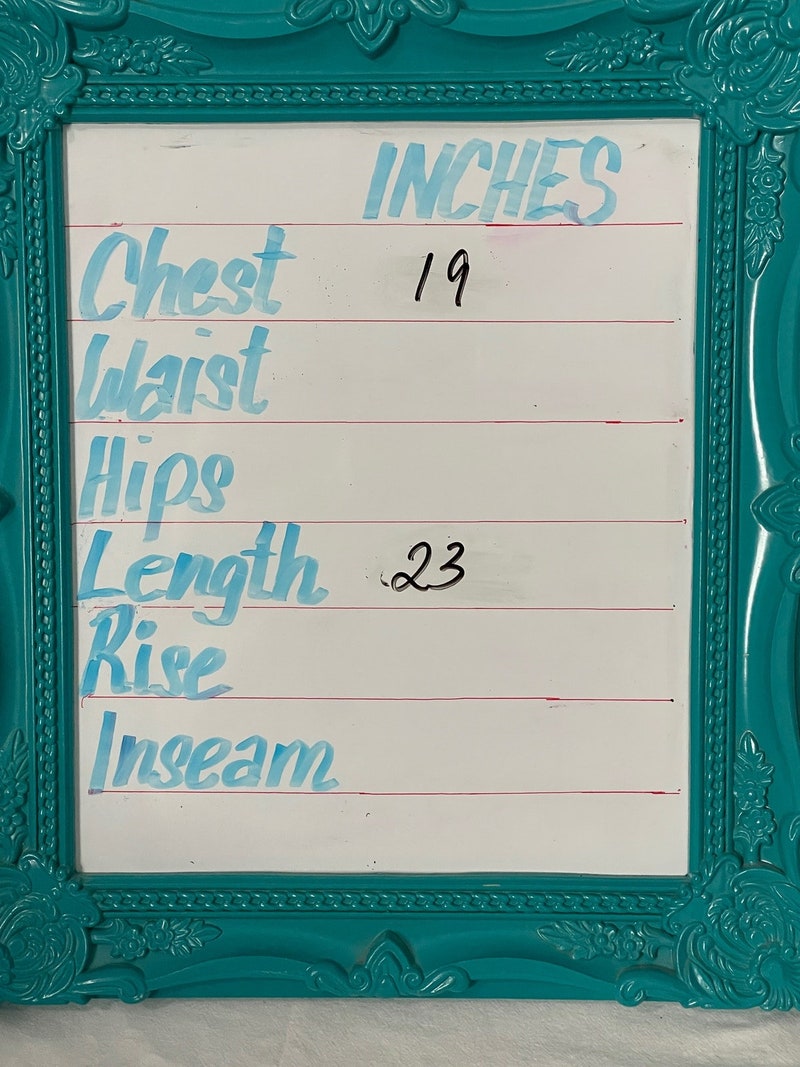 INCHES
Chest 19
Waist
Hips
Length 23
Rise
Inseam